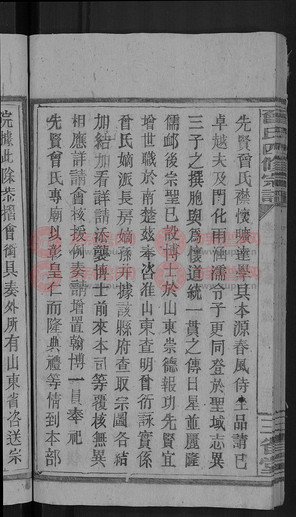 曾氏四修宗譜
先賢曾氏襟懷曠達學具本源春風侍坐品詣已
卓越夫及門化雨涵濡令子更同登於聖域志異
三子之撰胞與為懷道統一貫之傳日星並麗隆
儒邮後宗聖已啟博士於山東崇德報功先賢宜
增世職於南楚茲奉咨准山東查明曾衍詠實係
曾氏嫡派長房嫡孫并據該縣府查取宗圖各結
加結看詳請添襲博士前來本司等覆核無異
相應詳請會核援例奏請增置翰博一員奉祀
先賢曾氏專廟以彰皇仁而隆典禮等情到本部
院據此除恭摺會銜具奏外所有山東省咨送宗
三省堂